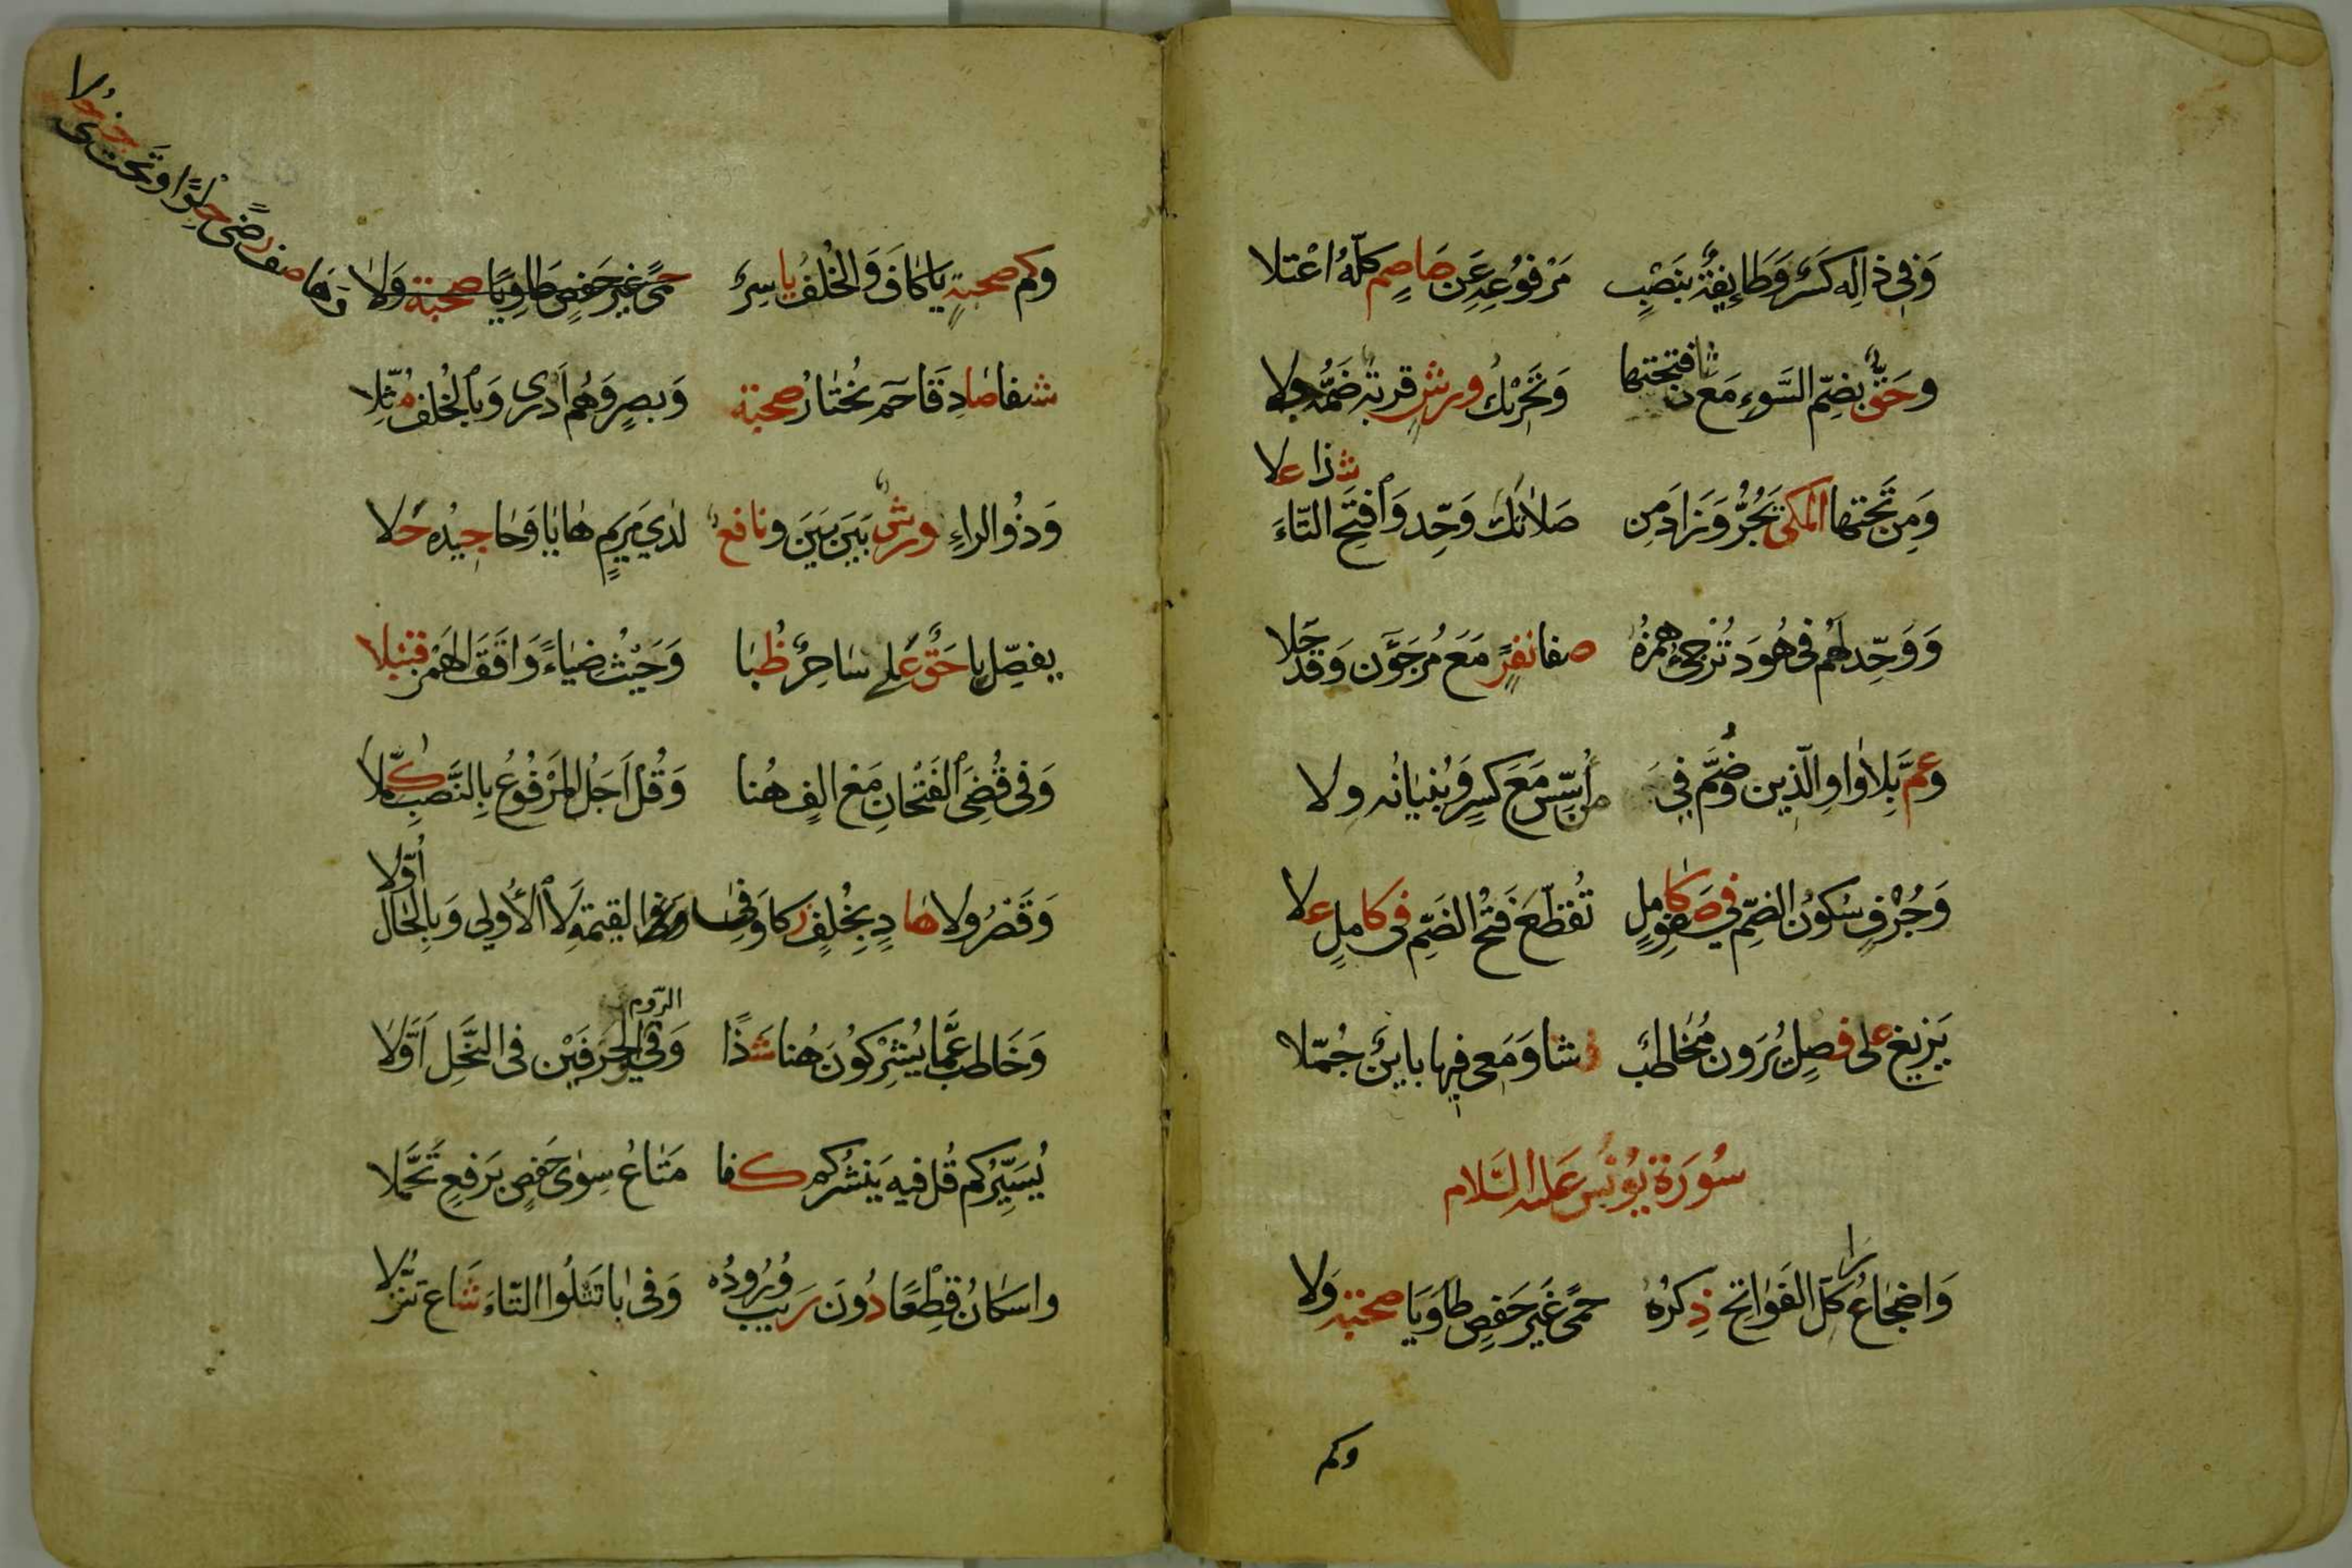 وَفِي ذٰلِكَ كَسْرٌ وَطَائِفَةٌ بِنَصْبِ مَرْفُوعِهِ عَن عَاصِمٍ كُلُّهُ اعْتَلا
وَحَقٌّ بِضَمِّ السَّوءِ مَعَ ثَانِ فتحتها وَتَحْرِيكُ ورش قربةٌ ضَمُّهُ جلا
وَمِن تَحْتِهَا المَكِّي يَجُرُّ وَزَادَ مِن صَلَاتَكَ وَحِّد وَافْتَحِ التَّاءَ شذا علا
وَوَحِّد لَهُم فِي هُودَ تُرْجِئُ هَمْزُهُ صفا نفرٍ مَعَ مُرْجَؤُنَ وَقَد حَلا
وعمَّ بِلا وَاوِ الّذين وَضُمَّ فِي مَن أُسِّسَ مَعَ كسرٍ وَبُنْيَانُه ولا
وَجُرْفٍ سُكُونُ الضَّمِّ فِي صَفوِ كَامِلٍ تُقَطَّعَ فَتْحُ الضَّمِّ فِي كامِلٍ علا
يَزِيغ على فصلٍ يُرَون مُخَاطَبٌ فشا وَمَعِي فيها بيائين جُمّلا
سُورَة يُونُس عَلَيه السَّلام
وَاضْجَاعُ رَا كُلِّ الفَوَاتِحِ ذِكْرُهُ حِمًى غَيْرَ حَفْصٍ طَا وَيَا صحبة وَلا
وكم
وكم صحبةٍ يَا كَافَ وَالخُلْفُ يَاسِرٌ حِمًى غَيْرَ حَفْصٍ طَا وَيَا صحبة وَلا
وَهَا صف رضًى حلوًا وَتَحت جنى حلا
شفا صادِقًا حم مُخْتَارُ صحبة وَبَصرٍ وَهُم أَدْرَى وَبِالْخُلْفِ مُثِّلا
وَذُو الراءِ ورشٌ بَيْنَ بَيْنَ ونافعٌ لَدَى مَريَمٍ هَا يَا وَحَا جِيدُه حَلا
يفصّل يا حَقٍّ عُلا سَاحِرٌ ظُبًا وَحَيْثُ ضِيَاءً وَافَقَ الهَمْزُ قنبلا
وَفِي قُضِيَ الفَتْحَانِ مَعَ الفٍ هُنا وَقُلْ أَجَلُ المَرْفُوعُ بِالنَّصْبِ كُمِّلا
وَقَصْرُ ولا هَادٍ بِخُلْفٍ زكا وَفِي القيمة لا الأُولى وَبِالحَالِ أُوِّلا
وَخَاطَبَ عَمَّا يُشْرِكُونَ هُنا شَذًا وَفِي الرّوم وَالحَرْفَيْنِ فِي النَّحْلِ أَوَّلا
يُسَيِّرُكُم قُل فِيهِ يَنْشُرُكُم كَفا مَتَاعُ سِوَى حَفْصٍ بِرَفْعٍ تَحَمَّلا
واسكَانُ قِطْعًا دُونَ رَيبٍ وُرُودُه وَفِي بَا تَبْلُوا التَّاءُ شَاعَ تَنَزُّلا